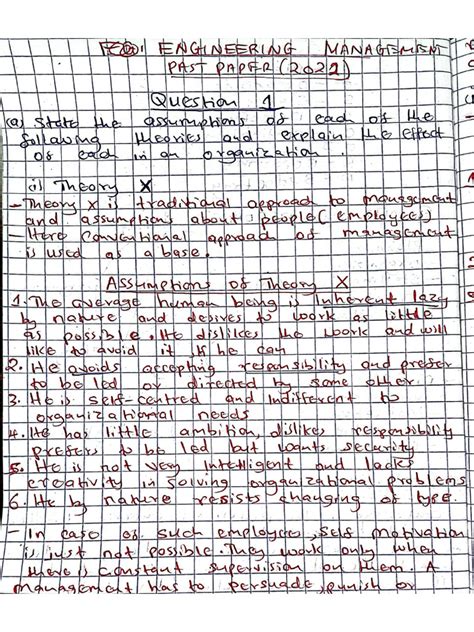 ENGINEERING MANAGEMENT
PAST PAPER (2022)
Question 1
(a) State the assumptions of each of the
following theories and explain the effect
of each in an organization.
i) Theory X
- Theory X is traditional approach to management
and assumptions about people (employees)
- Here Conventional approach of management
is used as a base.
Assumptions of Theory X
1. The average human being is Inherent lazy
by nature and desires to work as little
as possible. He dislikes the work and will
like to avoid it, if he can
2. He avoids accepting responsibility and prefer
to be led or directed by some other.
3. He is self-centred and Indifferent to
organizational needs
4. He has little ambition, dislikes responsibility
prefers to be led but wants security
5. He is not very Intelligent and lacks
creativity in solving organizational problems
6. He by nature resists changing of type.
- In case of such employees, self motivation
is just not possible. They work only when
there is constant supervision on them. A
management has to persuade, punish or